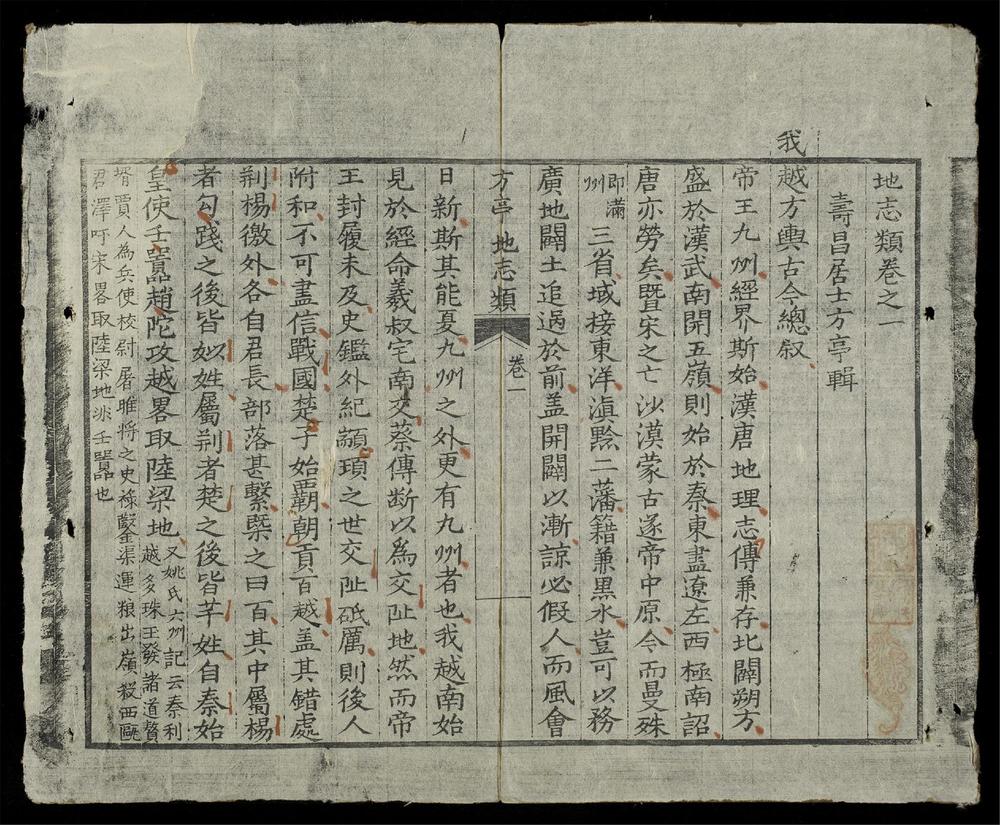 地志類卷之一
壽昌居士方亭輯
我越方輿古今總叙
帝王九州經界斯始漢唐地理志傳兼存北闢朔方
盛於漢武南開五嶺則始於秦東盡遼左西極南詔
唐亦勞矣暨宋之亡沙漠蒙古遂帝中原今而曼殊
即滿
州
三省域接東洋滇黔二藩籍兼黑水豈可以務
廣地闢土追過於前盖開闢以漸諒必假人而風會
方亭地志類 卷一
日新斯其能夏九州之外更有九州者也我越南始
見於經命羲叔宅南交蔡傳断以為交阯地然而帝
王封履未及史鑑外紀顓頊之世交阯砥厲則後人
附和不可盡信戰國楚子始霸朝貢百越盖其錯處
荆楊徼外各自君長部落甚繫槩之曰百其中屬楊
者勾踐之後皆姒姓屬荆者楚之後皆芈姓自秦始
皇使壬囂趙陀攻越畧取陸梁地
又姚氏六州記云秦利
越多珠玉發諸道贅
壻賈人為兵使校尉屠睢將之史祿鑿渠運粮出嶺殺西甌
君澤吁宋畧取陸梁地非壬囂也